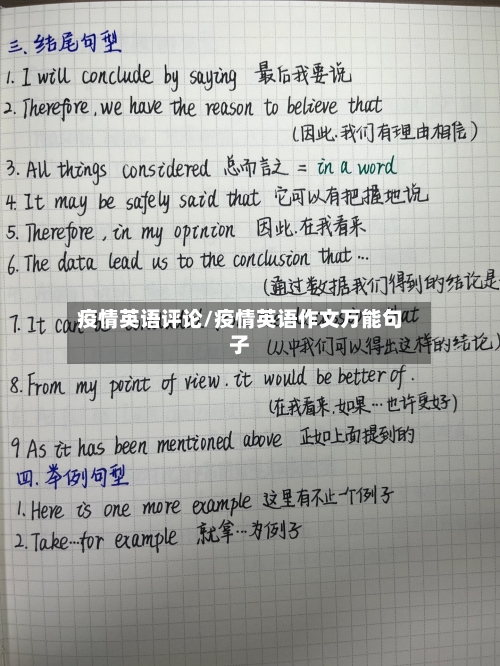 三、结尾句型
1. I will conclude by saying 最后我要说
2. Therefore, we have the reason to believe that
(因此,我们有理由相信)
3. All things considered 总而言之 = in a word
4. It may be safely said that 它可以有把握地说
5. Therefore, in my opinion 因此,在我看来
6. The data lead us to the conclusion that…
(通过数据我们得到的结论是
疫情英语评论/疫情英语作文万能句
子
7. It can that
(从中我们可以得出这样的结论)
8. From my point of view. it would be better of.
(在我看来,如果…也许更好)
9 As it has been mentioned above 正如上面提到的
四、举例句型
1. Here is one more example 这里有不止一个例子
2. Take…for example 就拿…为例子